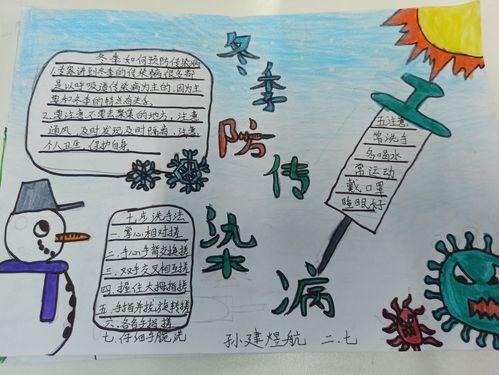 冬季如何预防传染病
1.专家讲到冬季的传染病很多都
是以呼吸道传染病为主的,因为主
要和冬季的特点有关系
2.要注意不要去聚集的地方,注意
通风,及时发现及时隔离,注意
个人卫生,保护自身
冬季防传染病
五注意
常洗手
多喝水
常运动
戴口罩
睡眠好
七步洗手法
一.掌心相对搓
二.手心手背交换搓
三.双手交叉相互搓
四.握住大拇指搓
五.手指并拢旋转搓
六.各自手指搓
七.仔细手腕洗
孙建煜航 二.七